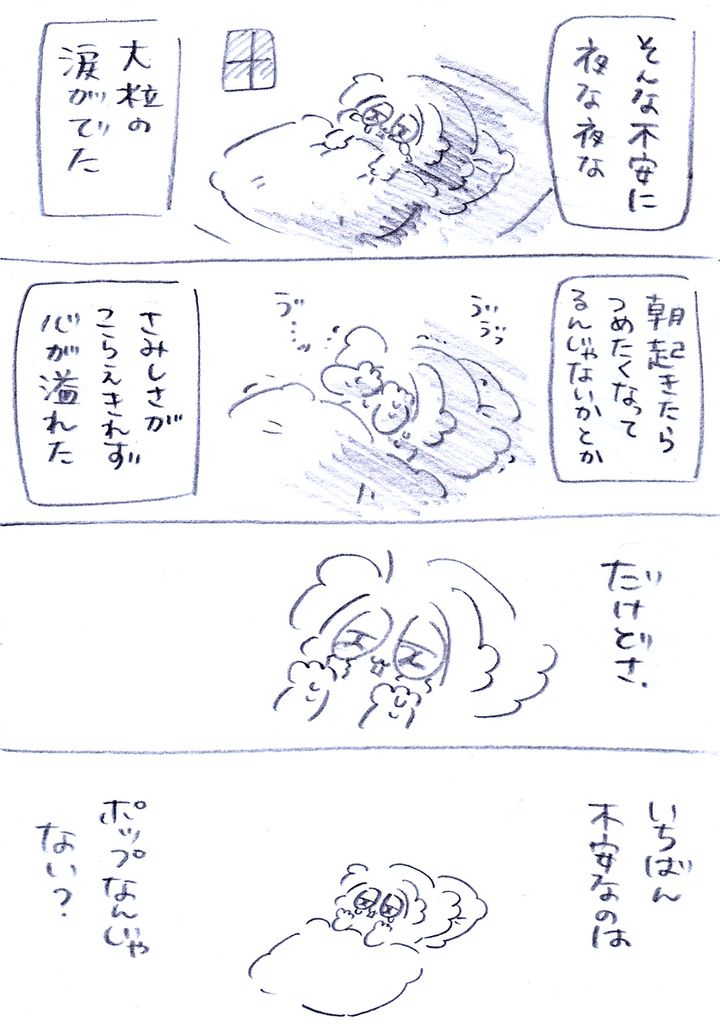 そんな不安に
夜な夜な
大粒の
涙がでた
朝起きたら
つめたくなって
るんじゃないかとか
ゔぅ
ゔっ
ゔ…ッ
さみしさが
こらえきれず
心が溢れた
だけどさ.
いちばん
不安なのは
ポップなんじゃ
ない?